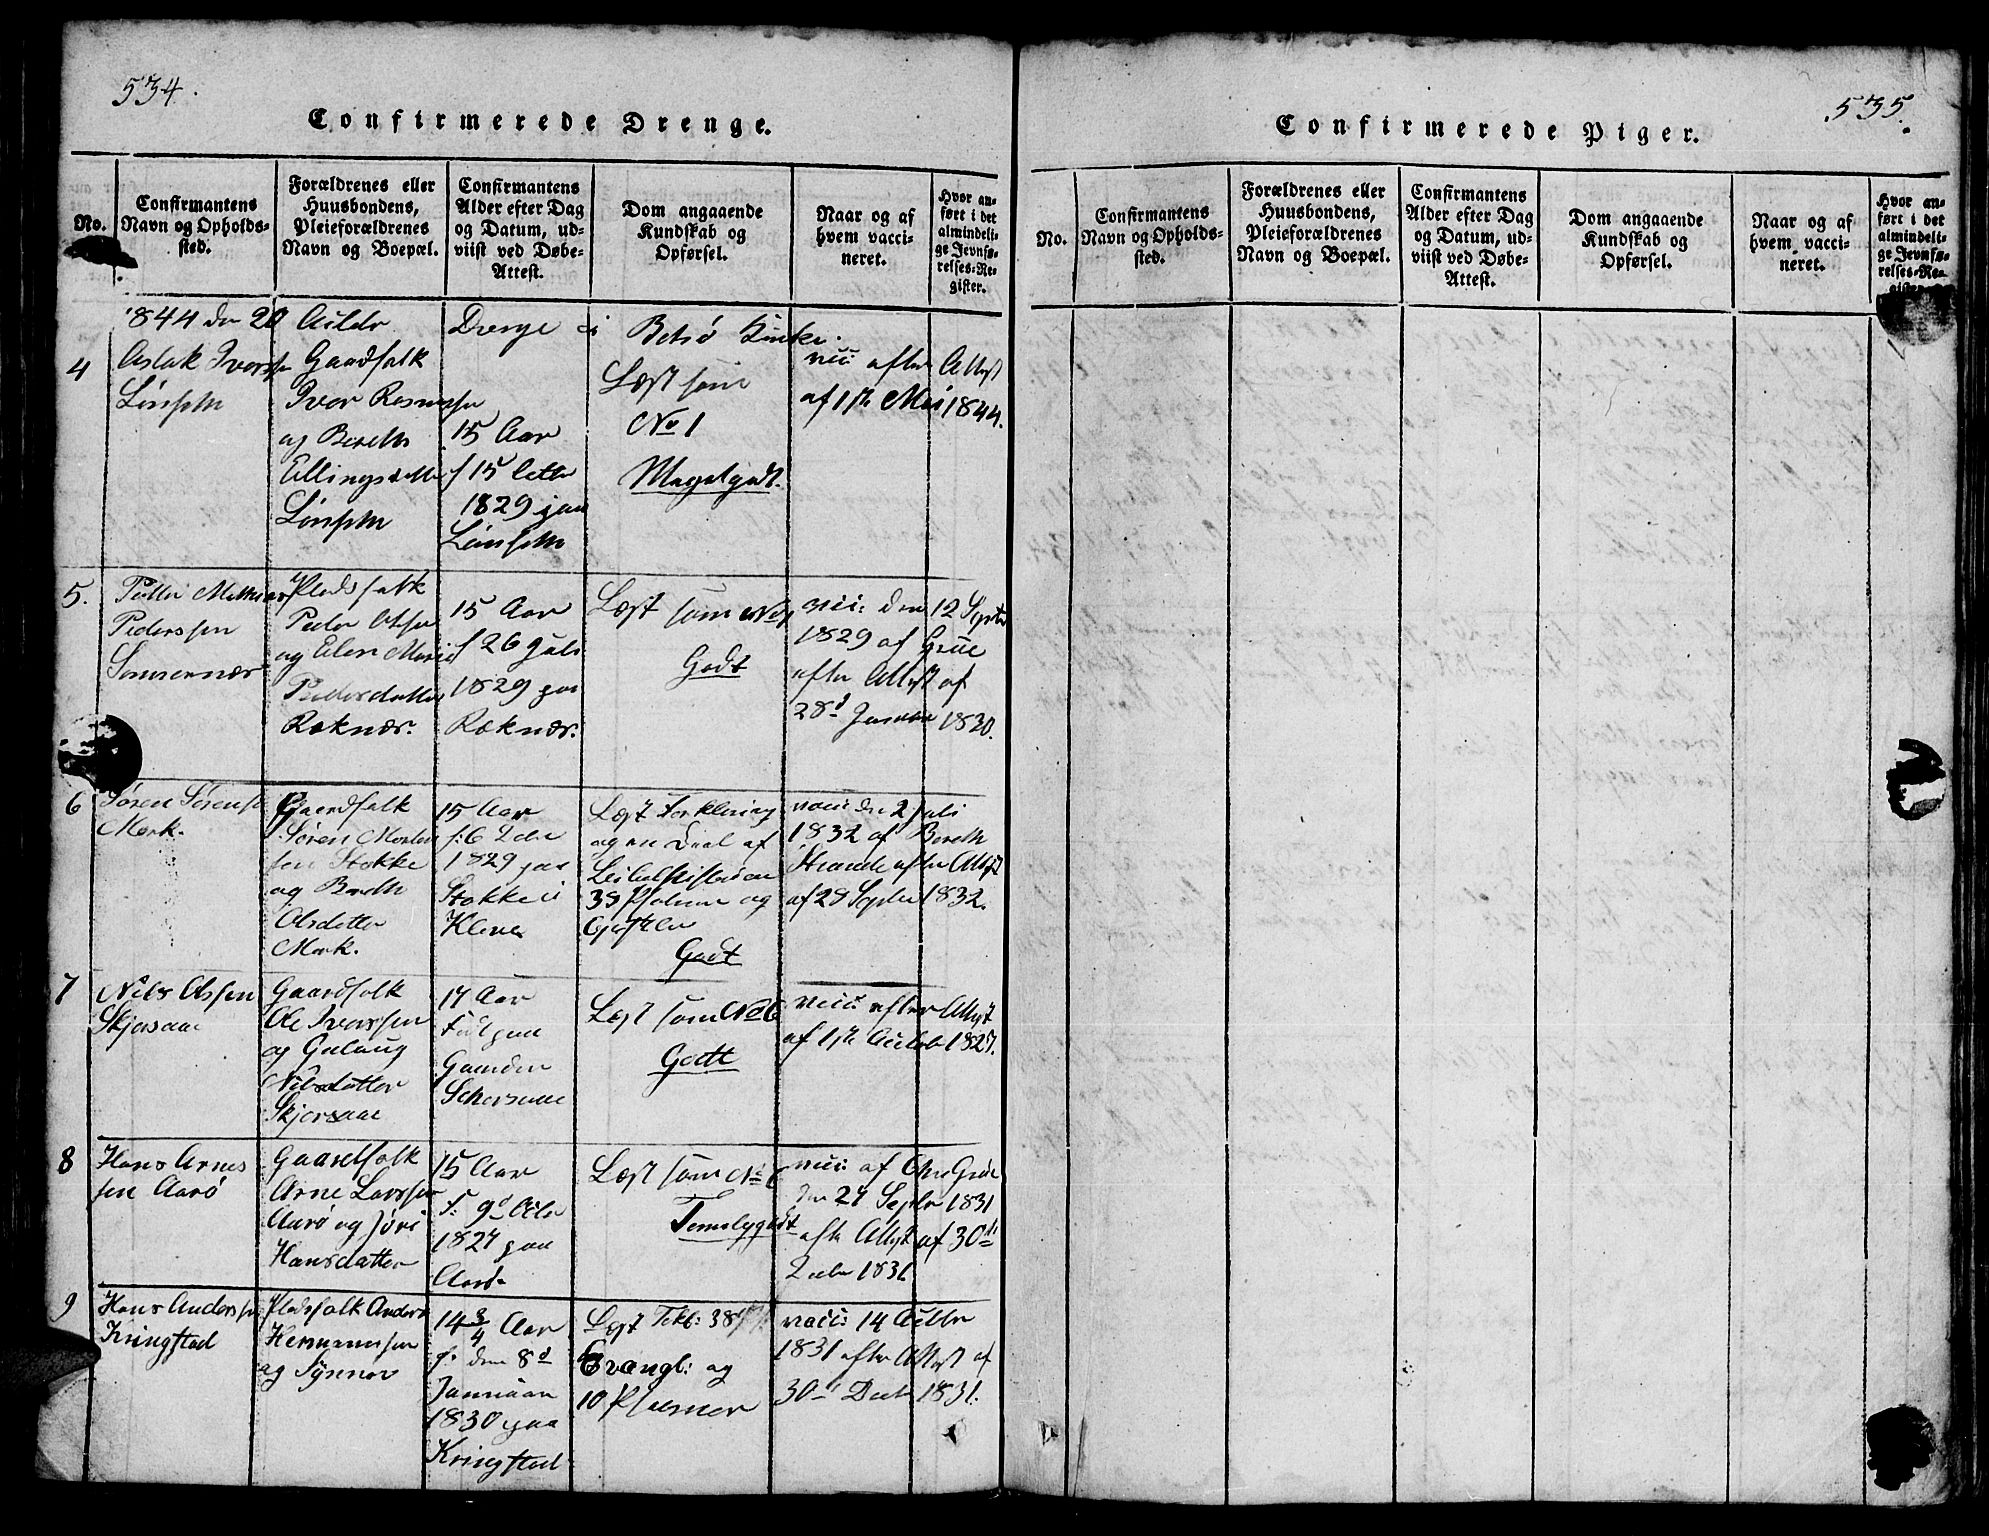 534.
Confirmerede Drenge.
No.
Confirmantens
Navn og Opholds-
sted.
Forældrenes eller
Huusbondens,
Pleieforældrenes
Navn og Boepæl.
Confirmantens
Alder efter Dag
og Datum, ud-
viist ved Døbe-
Attest.
Dom angaaende
Kundskab og
Opførsel.
Naar og af
hvem vacci-
neret.
Hvor an-
ført i det
almindeli-
ge Jevnfø-
relses-Re-
gister.
1844 den 20 Drenge i Kirke
4
Aslak Iverssen
Lønsethe
Gaardfolk
Iver Rasmussen
og Berethe
Ellingsdatter
Lønsethe
15 Aar
f 15
1829 paa
Lønsethe
Læst som
No 1
Meget godt.
vac: efter Attest
af 1ste Mai 1844.
5.
Petter Mathias
Pederssen
Sømernær
Pladsfolk
Peder Olsen
og Elen Marie
Pedersdatter
Røknær.
15 Aar
f 26 Juli
1829 paa
Røknær:
Læst som No 1
Godt
vac: den 12 Septbr
1829 af Grüe
efter Attest af
28d Januar 1830.
6
Søren Sørens
Mork.
Gaardfolk
Søren Morten
sen Stokke
og Berethe
Olsdatter
Mork.
15 Aar
f: 6
1829 paa
Stokke i
Kleve
Læst Forklaring
og en Deel af
Bibelhistorien
38 Psalmer og
Godt
vac: den 2 Juli
1832 af Bereth
Strande efter Attest
af 28 Septbr 1832.
7
Nils Olssen
Skjorsaae
Gaardfolk
Ole Iverssen
og Gulaug
Nilsdatter
Skjorsaae
17 Aar
Født paa
Gaarden
Skorsaae
Læst som No 6
Godt
vac: efter Attest
af 1ste 1827.
8
Hans Arnes
sen Aarø
Gaardfolk
Arne Larssen
Aarø og Jøri
Hansdatter
15 Aar
f: 9d
1827 paa
Aarø.
Læst som No 6
Temelig godt
vac: af Ohe Grüe
den 27 Septbr 1831
efter Attest af 30te
Decbr 1831
9
Hans Anderssen
Kringstad
Pladsfolk Anders
Hermanssen
og Synnøv
14 3/4 Aar
f. den 8d
Januar
1830 paa
Kringstad
Læst
Evangl: og
10 Psalmer
vac: 14 Octbr
1831 efter Attest af
30d Decbr 1831.
535.
Confirmerede Piger.
No.
Confirmantens
Navn og Opholds-
sted.
Forældrenes eller
Huusbondens,
Pleieforældrenes
Navn og Boepæl.
Confirmantens
Alder efter Dag
og Datum, ud-
viist ved Døbe-
Attest.
Dom angaaende
Kundskab og
Opførsel.
Naar og af
hvem vacci-
neret.
Hvor an-
ført i det
almindeli-
ge Jevnfø-
relses-Re-
gister.